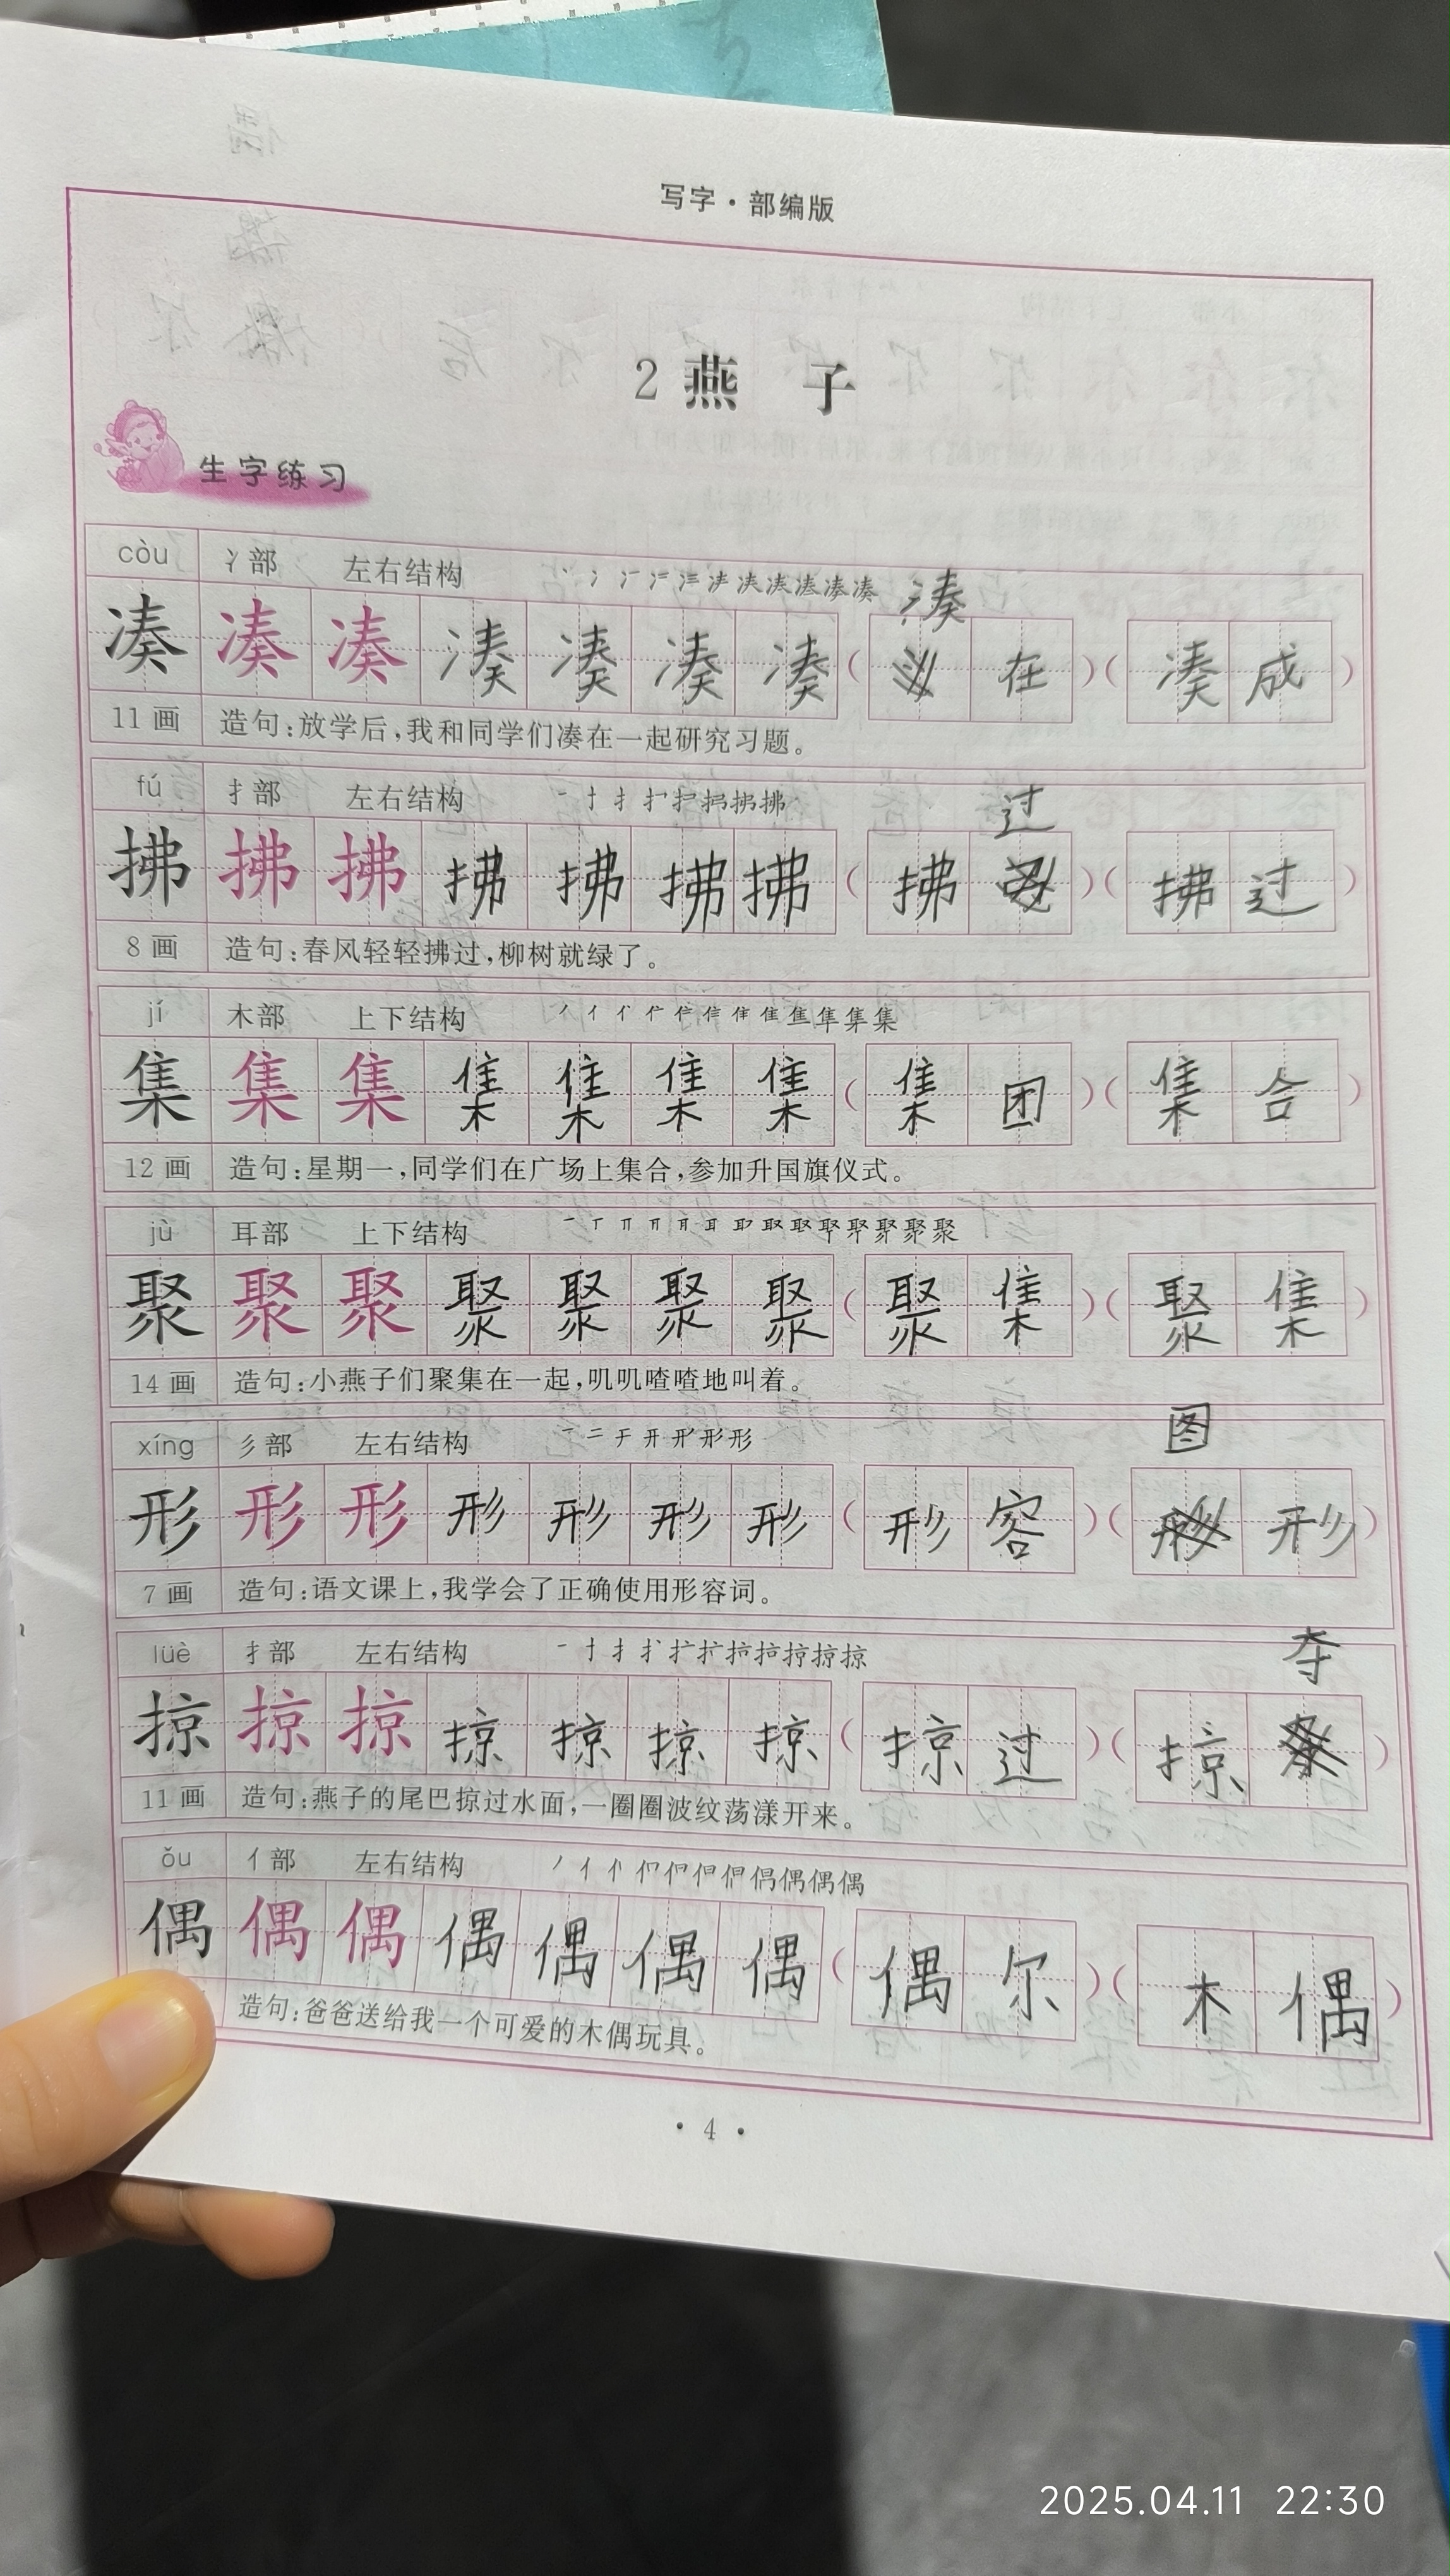 写字·部编版
2 燕 子
生字练习
còu 冫部 左右结构 丶 冫 冫 冫 冫 凑
凑
凑 凑 凑 凑 凑 凑 凑 ( 在 ) ( 凑 成 )
11 画 造句:放学后,我和同学们凑在一起研究习题。
fú 扌部 左右结构 一 十 扌 拂
过
拂 拂 拂 拂 拂 拂 拂 ( 拂 ) ( 拂 过 )
8 画 造句:春风轻轻拂过,柳树就绿了。
jí 木部 上下结构 丿 亻 隹 隼 集 集
集 集 集 集 集 集 集 ( 集 团 ) ( 集 合 )
12 画 造句:星期一,同学们在广场上集合,参加升国旗仪式。
jù 耳部 上下结构 一 丅 耳 取 聚
聚 聚 聚 聚 聚 聚 聚 ( 聚 集 ) ( 聚 集 )
14 画 造句:小燕子们聚集在一起,叽叽喳喳地叫着。
图
xíng 彡部 左右结构 一 二 于 开 形 形
形 形 形 形 形 形 形 ( 形 容 ) ( 形 )
7 画 造句:语文课上,我学会了正确使用形容词。
夺
lüè 扌部 左右结构 一 十 扌 扩 掠 掠
掠 掠 掠 掠 掠 掠 掠 ( 掠 过 ) ( 掠 )
11 画 造句:燕子的尾巴掠过水面,一圈圈波纹荡漾开来。
ǒu 亻部 左右结构 丿 亻 偶 偶 偶
偶 偶 偶 偶 偶 偶 偶 ( 偶 尔 ) ( 木 偶 )
造句:爸爸送给我一个可爱的木偶玩具。
· 4 ·
2025.04.11 22:30